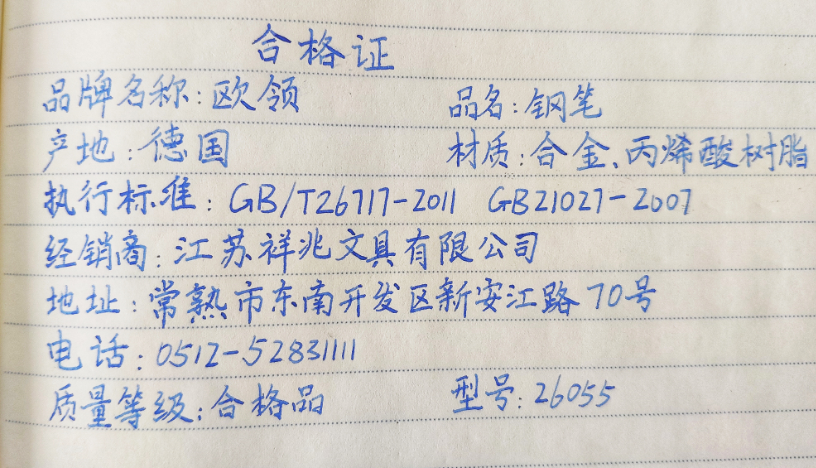 合格证
品牌名称:欧领 品名:钢笔
产地:德国 材质:合金、丙烯酸树脂
执行标准:GB/T26717-2011 GB21027-2007
经销商:江苏祥兆文具有限公司
地址:常熟市东南开发区新安江路70号
电话:0512-52831111
质量等级:合格品 型号:26055